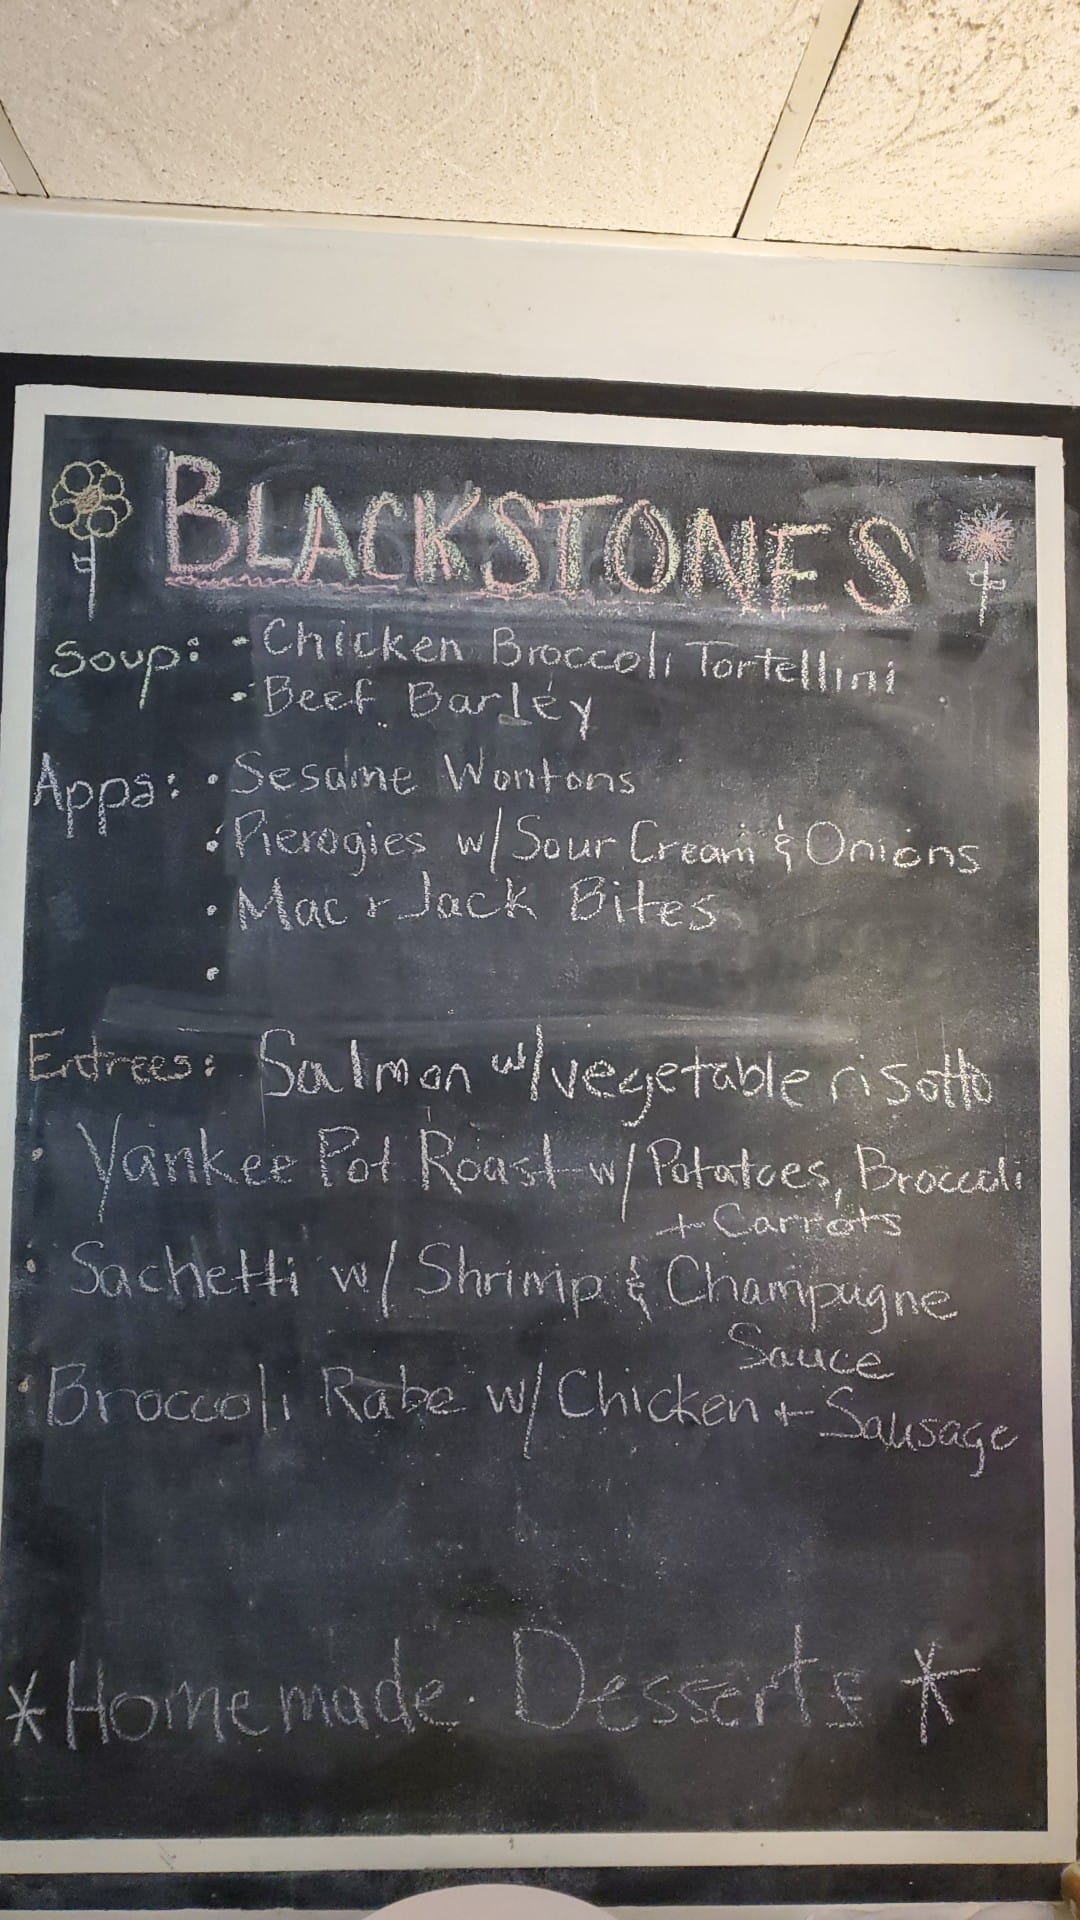 BLACKSTONES
Soup: - Chicken Broccoli Tortellini
- Beef Barley
Apps: • Sesame Wontons
• Pierogies w/ Sour Cream & Onions
• Mac + Jack Bites
•
Entrees: Salmon w/ vegetable risotto
• Yankee Pot Roast w/ Potatoes, Broccoli
+ Carrots
• Sachetti w/ Shrimp & Champagne
Sauce
• Broccoli Rabe w/ Chicken + Sausage
* Homemade Desserts *